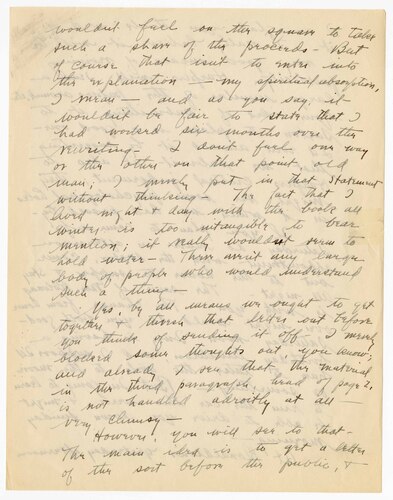 wouldn't feel on the square to take
such a share of the proceeds - But
of course that isn't to enter into
the explanation — my spiritual absorption,
I mean — and as you say, it
wouldn't be fair to state that I
had worked six months over the
rewriting - I don't feel one way
or the other on that point, old
man; I merely put in that statement
without thinking - The fact that I
lived night & day with the book all
winter is too intangible to bear
mention; it really wouldn't seem to
hold water - There aren't any large
body of people who would understand
such a thing -
Yes, by all means we ought to get
together & thresh that letter out before
you think of sending it off. I merely
blocked some thoughts out, you know;
and already I see that the material
in the third paragraph, head of page 2,
is not handled adroitly at all —
very clumsy -
However, you will see to that -
The main idea is to get a letter
of the sort before the public, &